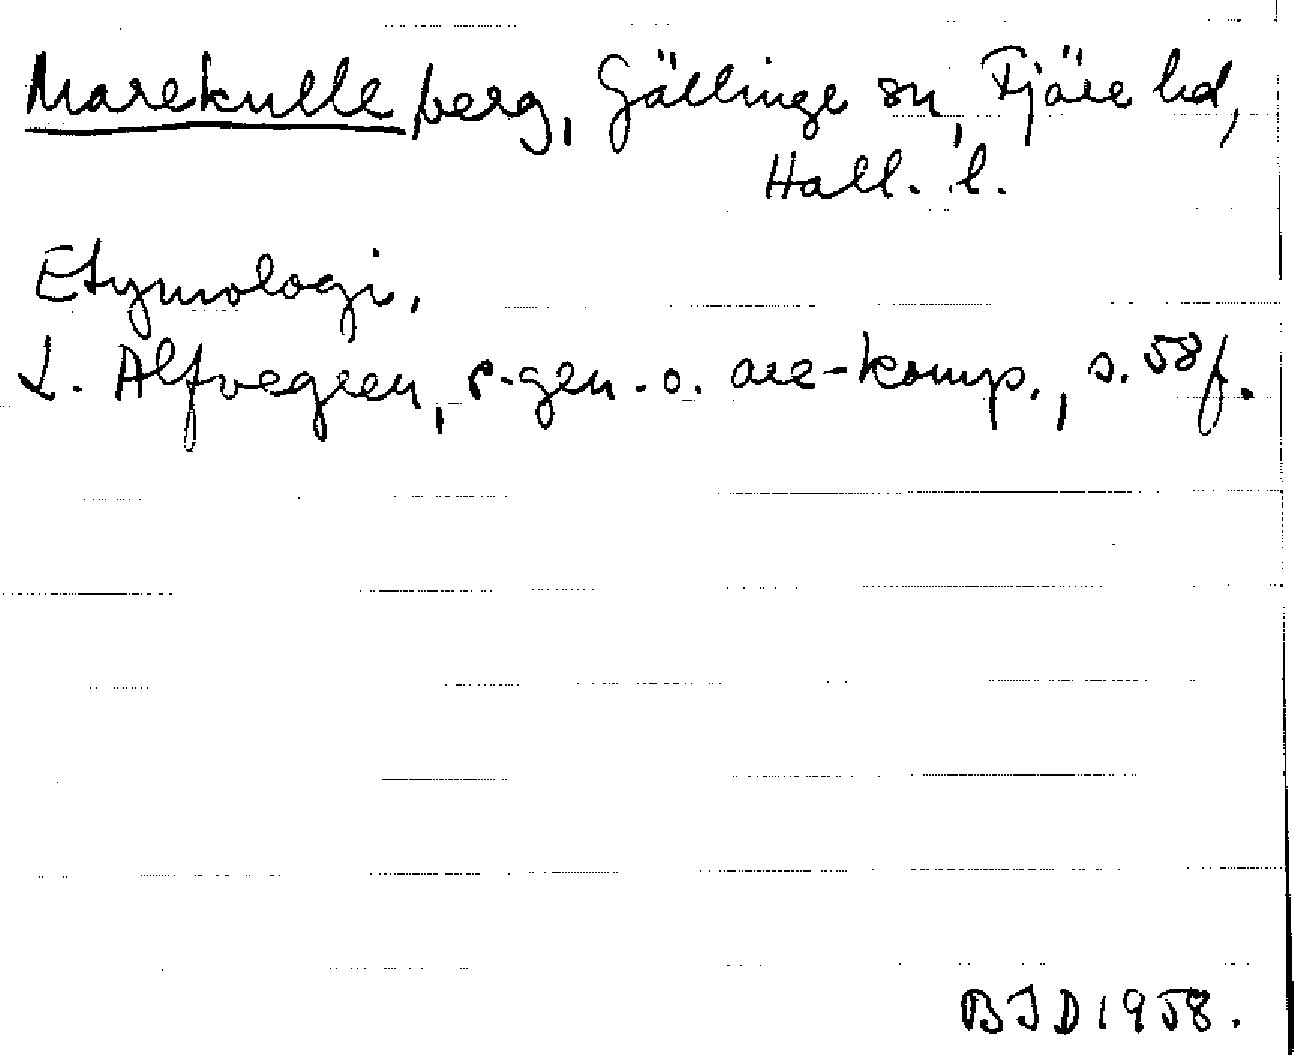 Marekulle berg, Gällinge sn, Fjäre hd,
Hall. l.
Etymologi.
L. Alfvegren, r-gen. o. are-komp., s. 58 f.
BJD 1958.